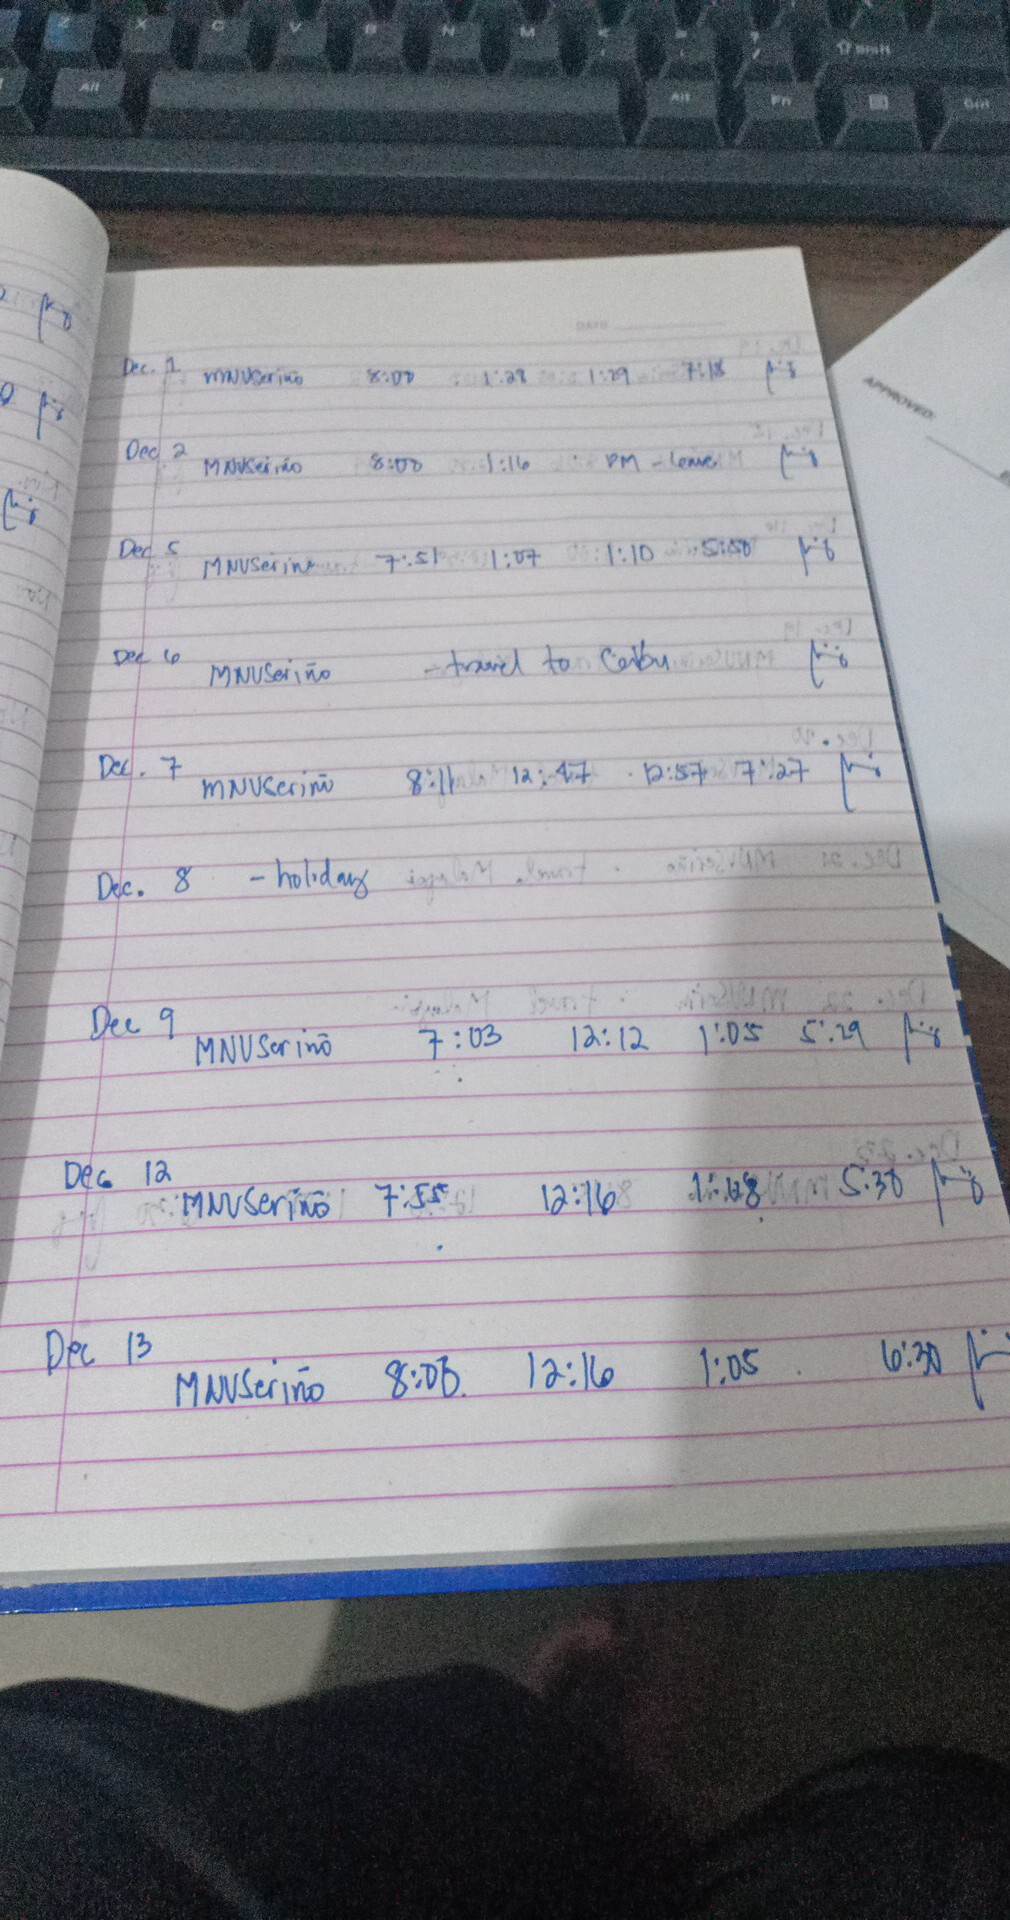 Z X C V B N M < > ? ⇧ Shift
Alt Alt Fn Ctrl
DATE
APPROVED:
Dec. 1 MNVSeriño 8:00 1:28 1:29 7:18
Dec 2 MNVSeriño 8:00 1:16 PM - leave
Dec 5 MNVSeriño 7:51 1:07 1:10 5:50
Dec 6 MNVSeriño - travel to Cebu
Dec. 7 MNVSeriño 8:11 12:47 12:57 7:27
Dec. 8 - holiday
Dec 9 MNVSeriño 7:03 12:12 1:05 5:29
Dec 12 MNVSeriño 7:55 12:16 5:30
Dec 13 MNVSeriño 12:16 1:05 6:30